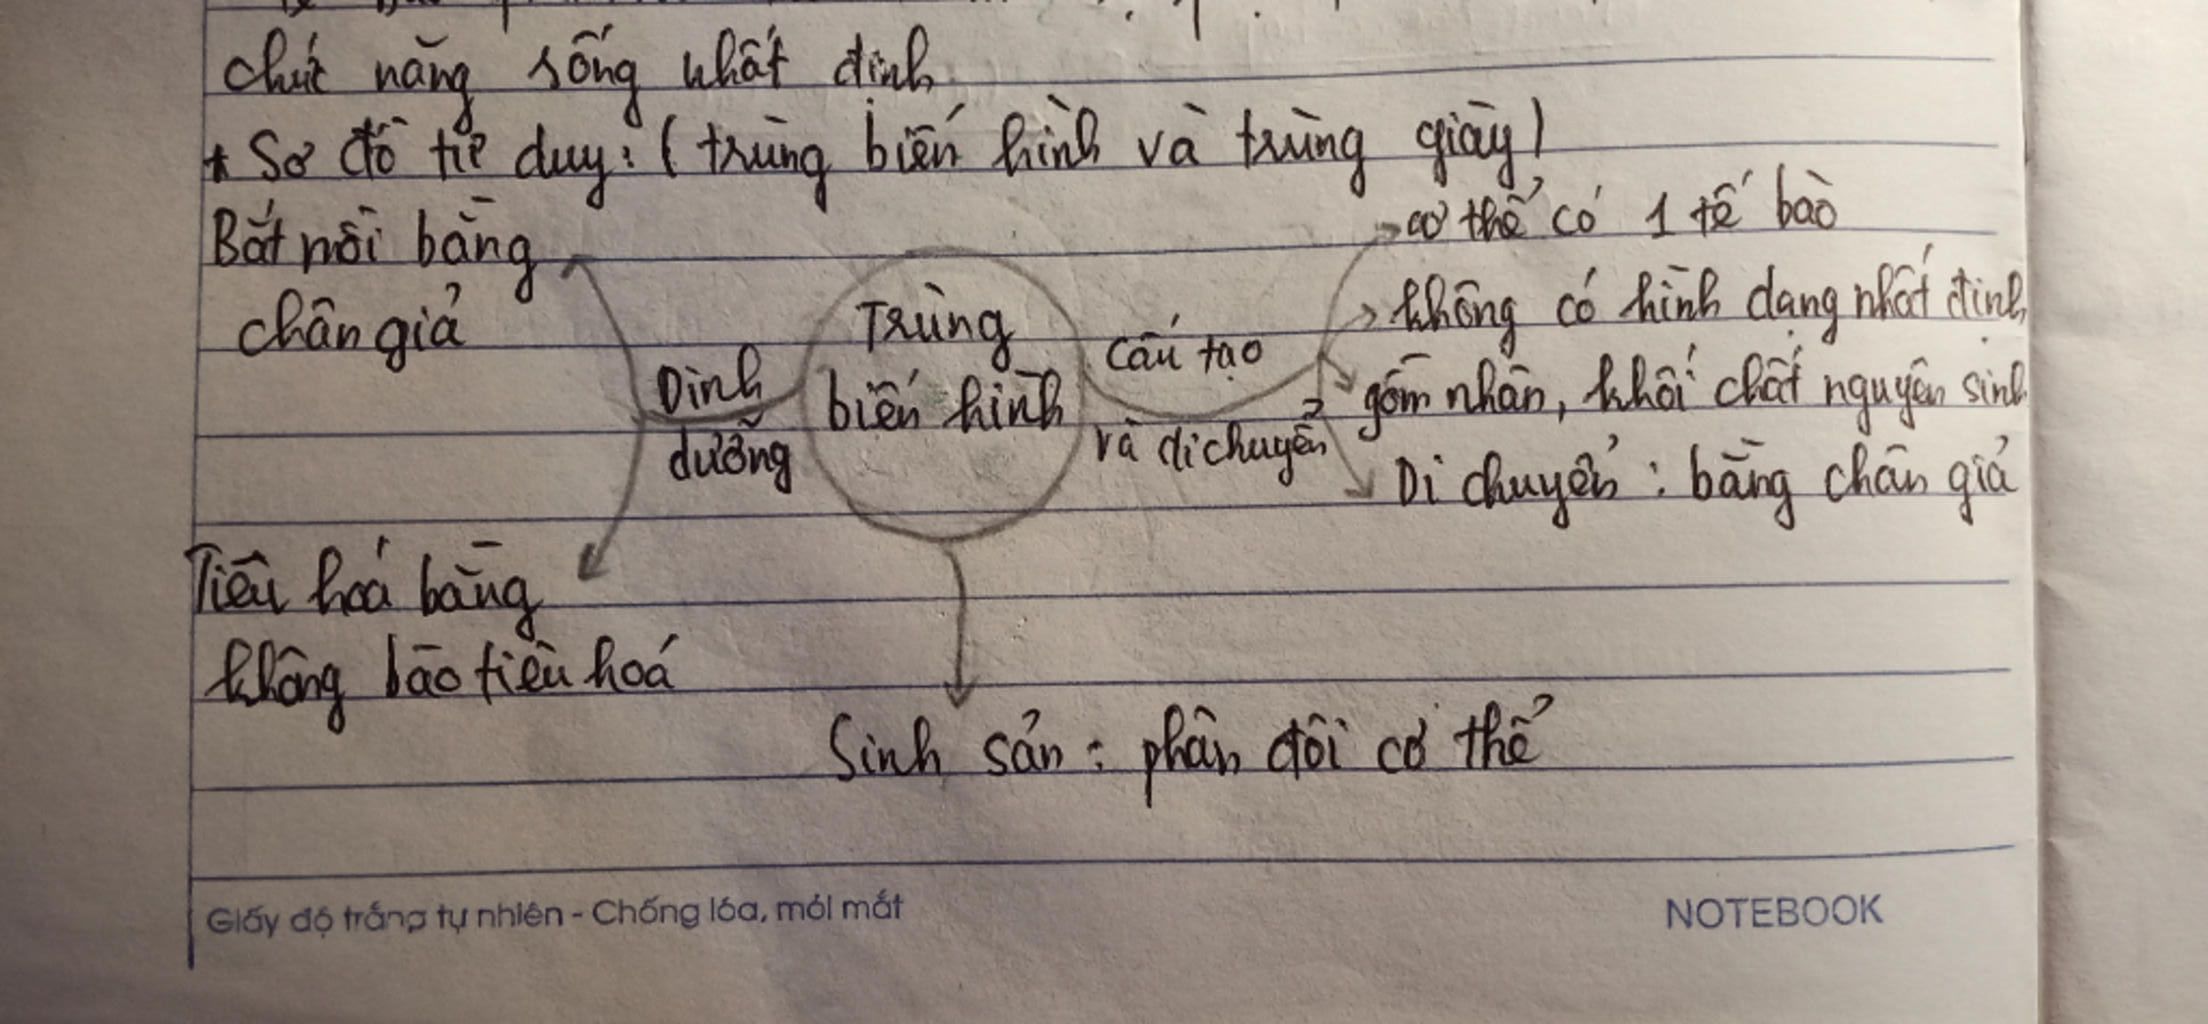 chức năng sống nhất định
* Sơ đồ tư duy: (trùng biến hình và trùng giày)
Bắt mồi bằng
chân giả
Dinh
dưỡng
Tiêu hoá bằng
không bào tiêu hoá
Trùng
biến hình
Cấu tạo
và di chuyển
cơ thể có 1 tế bào
không có hình dạng nhất định
gồm nhân, khối chất nguyên sinh
Di chuyển: bằng chân giả
Sinh sản: phân đôi cơ thể
Giấy độ trắng tự nhiên - Chống lóa, mỏi mắt
NOTEBOOK